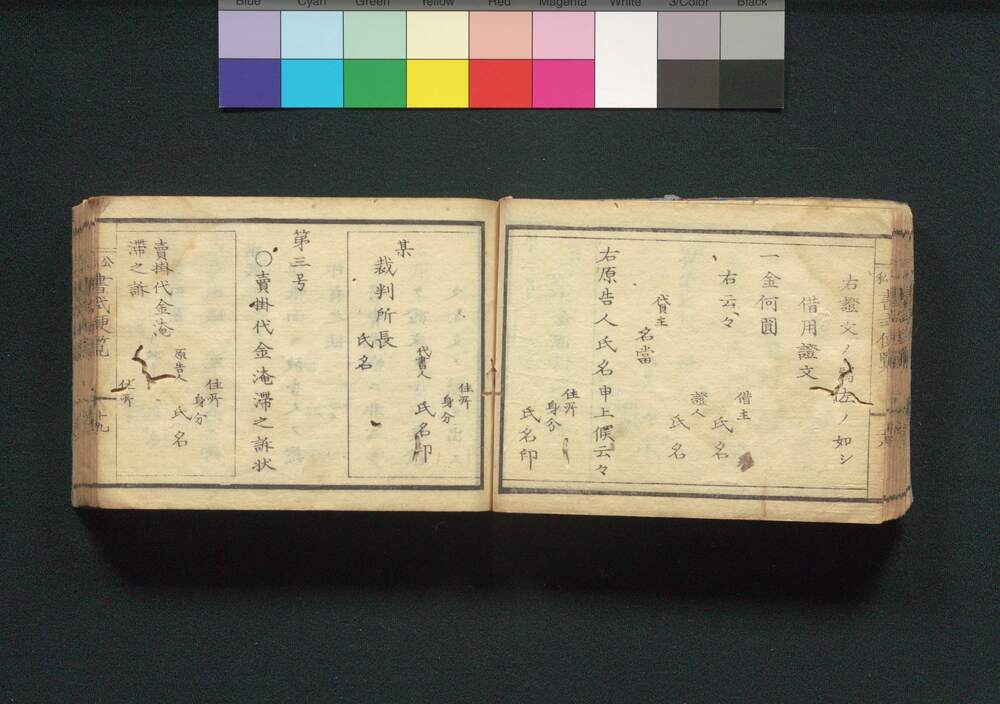 Blue Cyan Green Yellow Red Magenta White 3/Color Black
右證文ノ寫左ノ如シ
借用證文
一金何圓
右云々
借主 氏名
證人 氏名
貸主 名當
右原告人氏名申上候云々
住所
身分
氏名印
住所
身分
代書人 氏名印
某裁判所長
氏名
第三号
○賣掛代金淹滞之訴状
住所
身分
原告人 氏名
賣掛代金淹
滞之訴
住所